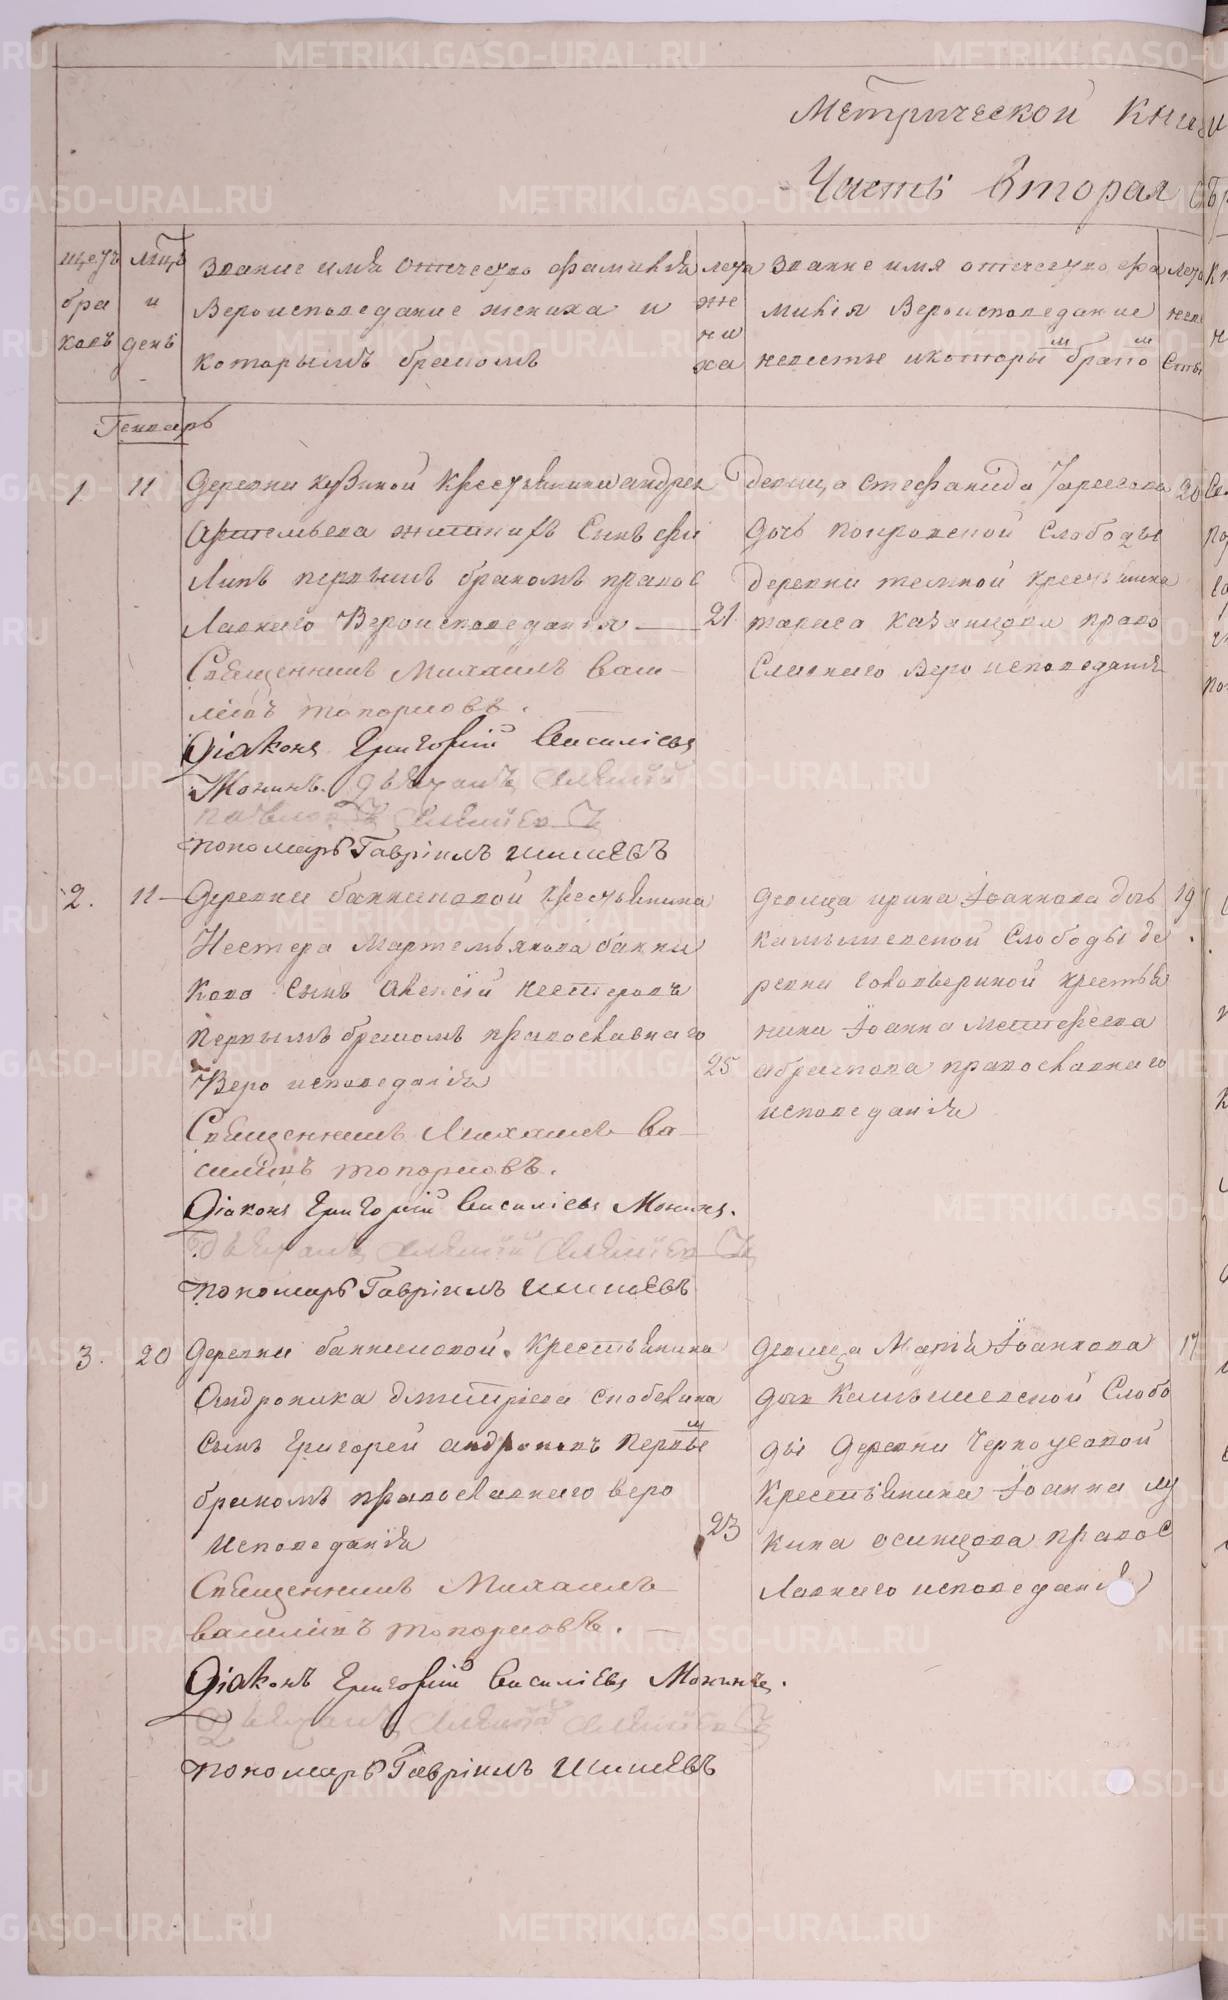 Метрической Кни
Часть вторая
щетъ
бра
ковъ
мѣцъ
и
день
Звание имя отечество фамилія
Вероисповедание жениха и
которымъ бракомъ
лета
же
ни
ха
Звание имя отечество фа
милія Вероисповедание
невесты и которымъ бракомъ
лета
неве
сты
Генварь
1
11
Деревни Кузиной Крестьянина андрея
Артемьева сынъ фи
липъ первымъ бракомъ правос
лавнаго Вероисповеданія
21
Священникъ Михаилъ Васи
ліевъ топорковъ.
Діаконъ Григорій Василіевъ
Монинъ. дьячокъ Алексій
пономарь Гавріилъ Шишевъ
Девица Стефанида Тарасова
дочь покровской Слободы
деревни темной крестьянина
тараса Казанцова право
славнаго Вероисповеданія
20
2.
11
Деревни банниковой крестьянина
Нестера Мартемьянова банни
кова сынъ Алексій нестеровъ
первымъ бракомъ православнаго
Вероисповеданія
25
Священникъ Михаилъ Ва
силіевъ топорковъ.
Діаконъ Григорій Василіевъ Монинъ.
дьячокъ Алексій
пономарь Гавріилъ Шишевъ
девица ирина Іоаннова дочь
камышевской Слободы де
ревни крестья
нина Іоанна
православнаго
исповеданія
19
3.
20
Деревни банниковой. Крестьянина
Андроника дмитріева
сынъ Григорей андроновъ первымъ
бракомъ православнаго веро
исповеданія
23
Священникъ Михаилъ
василіевъ топорковъ.
Діаконъ Григорій Василіевъ Монинъ.
дьячокъ Алексій
пономарь Гавріилъ Шишевъ
девица Марія Іоаннова
дочь Камышевской Слобо
ды Деревни Черноусовой
Крестьянина Іоанна лу
кина осинцова правос
лавнаго исповеданія
17
METRIKI.GASO-URAL.RU